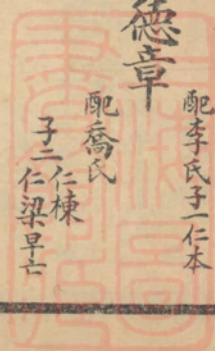 德章
配李氏子一仁本
配喬氏
子二仁棟
仁梁早亡